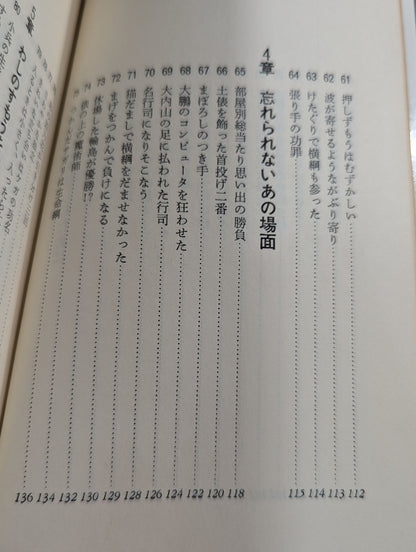 61 押しずもうはむずかしい 112
62 波が寄せるようながぶり寄り 113
63 けたぐりで横綱も参った 114
64 張り手の功罪 115
4章 忘れられないあの場面
65 部屋別総当たり思い出の勝負 118
66 土俵を飾った首投げ二番 120
67 まぼろしのつき手 122
68 大鵬のコンピュータを狂わせた 124
69 大内山の足に払われた行司 126
70 名行司になりそこなう 128
71 猫だましで横綱をだませなかった 129
72 まげをつかんで負けになる 130
73 休場した輪島が優勝!? 132
74 の魔術師 134
136
5章